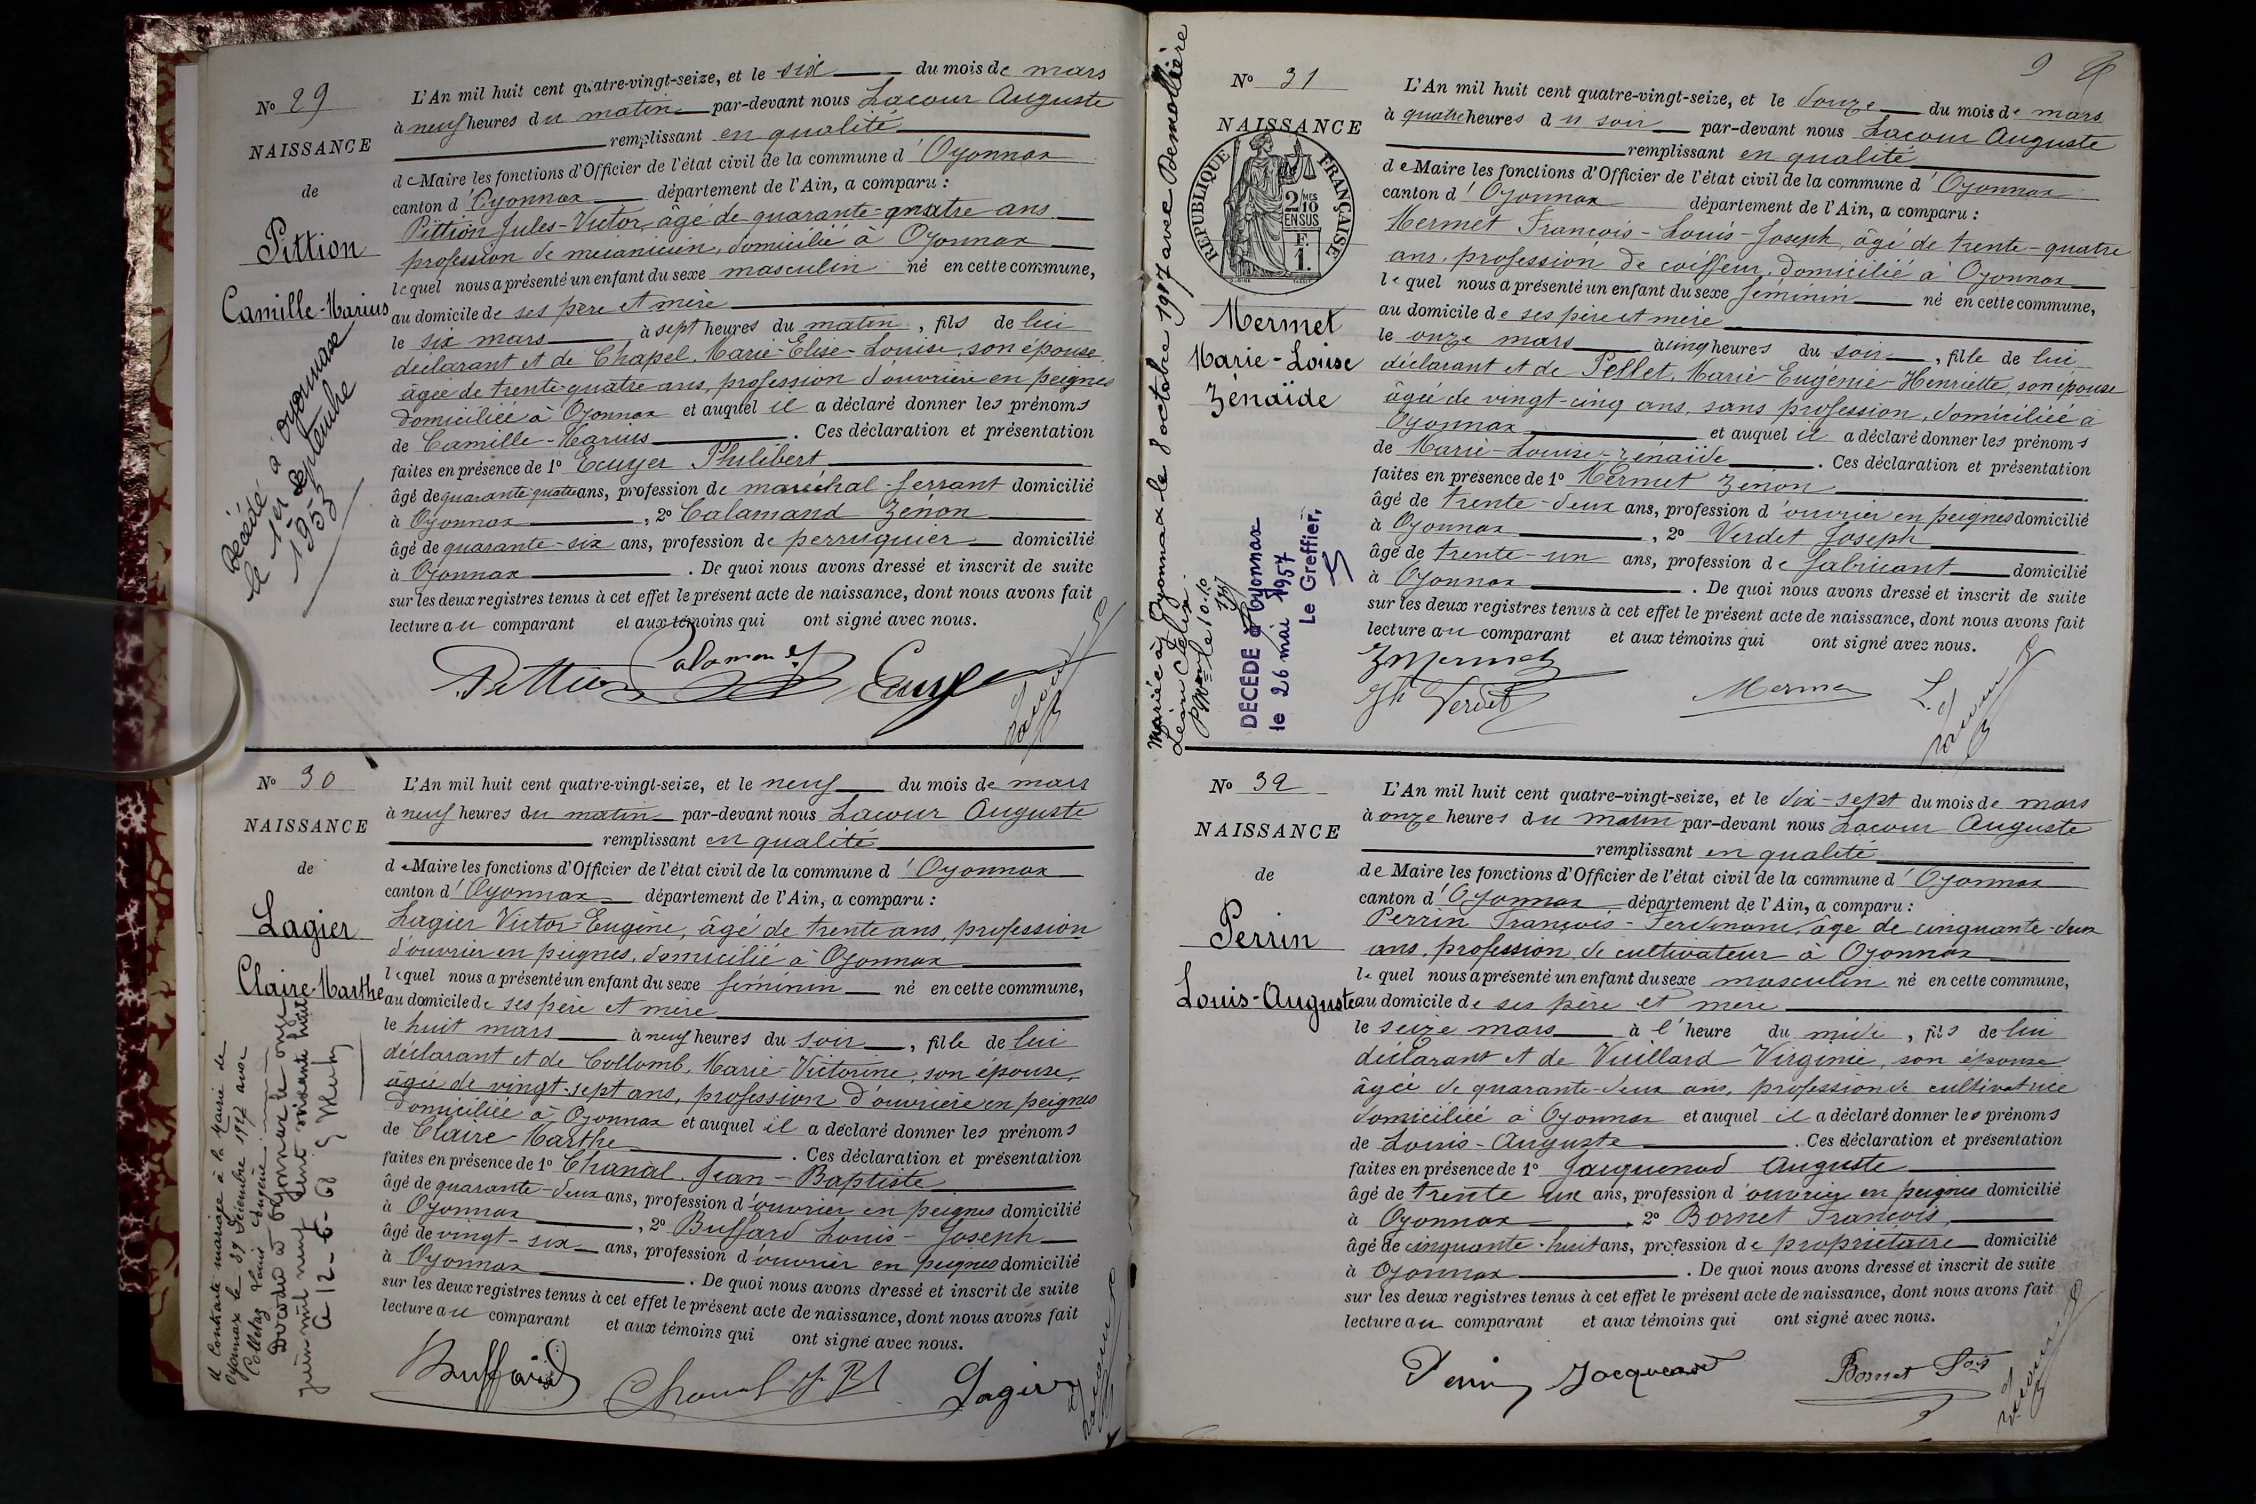 Nº 29
NAISSANCE
de
Pittion
Camille-Marius
Décédé à Oyonnax
le 1er Septembre
1953
L'An mil huit cent quatre-vingt-seize, et le six du mois de mars
à neuf heures du matin par-devant nous Lacour Auguste
remplissant en qualité
de Maire les fonctions d'Officier de l'état civil de la commune d'Oyonnax
canton d'Oyonnax département de l'Ain, a comparu :
Pittion Jules-Victor, âgé de quarante-quatre ans
profession de mécanicien, domicilié à Oyonnax
lequel nous a présenté un enfant du sexe masculin né en cette commune,
au domicile de ses père et mère
le six mars à sept heures du matin, fils de lui
déclarant et de Chapel, Marie-Elise-Louise, son épouse,
âgée de trente-quatre ans, profession d'ouvrière en peignes
domiciliée à Oyonnax et auquel il a déclaré donner les prénoms
de Camille-Marius. Ces déclaration et présentation
faites en présence de 1º Ecuyer Philibert
âgé de quarante quatre ans, profession de maréchal-ferrant domicilié
à Oyonnax, 2º Calamand Zénon
âgé de quarante-six ans, profession de perruquier domicilié
à Oyonnax. De quoi nous avons dressé et inscrit de suite
sur les deux registres tenus à cet effet le présent acte de naissance, dont nous avons fait
lecture au comparant et aux témoins qui ont signé avec nous.
Pittion Calamand Ecuyer
Nº 30
NAISSANCE
de
Lagier
Claire-Marthe
A Contracté mariage à la mairie de
Oyonnax le Décembre avec
Louis Eugène
Décédée à Oyonnax le onze
juin mil neuf cent soixante huit
L'An mil huit cent quatre-vingt-seize, et le neuf du mois de mars
à neuf heures du matin par-devant nous Lacour Auguste
remplissant en qualité
de Maire les fonctions d'Officier de l'état civil de la commune d'Oyonnax
canton d'Oyonnax département de l'Ain, a comparu :
Lagier Victor-Eugène, âgé de trente ans, profession
d'ouvrier en peignes, domicilié à Oyonnax
lequel nous a présenté un enfant du sexe féminin né en cette commune,
au domicile de ses père et mère
le huit mars à neuf heures du soir, fille de lui
déclarant et de Collomb, Marie-Victorine, son épouse,
âgée de vingt-sept ans, profession d'ouvrière en peignes
domiciliée à Oyonnax et auquel il a déclaré donner les prénoms
de Claire-Marthe. Ces déclaration et présentation
faites en présence de 1º Chanal, Jean-Baptiste
âgé de quarante-deux ans, profession d'ouvrier en peignes domicilié
à Oyonnax, 2º Buffard Louis-Joseph
âgé de vingt-six ans, profession d'ouvrier en peignes domicilié
à Oyonnax. De quoi nous avons dressé et inscrit de suite
sur les deux registres tenus à cet effet le présent acte de naissance, dont nous avons fait
lecture au comparant et aux témoins qui ont signé avec nous.
Buffard Chanal J Bt Lagier
9
Nº 31
NAISSANCE
RÉPUBLIQUE FRANÇAISE
2/10 MES
EN SUS
F.
1.
Mermet
Marie-Louise
Zénaïde
Mariée à Oyonnax le 8 octobre 1917 avec Demollière
Léon
DÉCÉDÉ à Oyonnax
le 26 mai 1957
Le Greffier,
L'An mil huit cent quatre-vingt-seize, et le douze du mois de mars
à quatre heures du soir par-devant nous Lacour Auguste
remplissant en qualité
de Maire les fonctions d'Officier de l'état civil de la commune d'Oyonnax
canton d'Oyonnax département de l'Ain, a comparu :
Mermet François-Louis-Joseph, âgé de trente-quatre
ans, profession de coiffeur, domicilié à Oyonnax
lequel nous a présenté un enfant du sexe féminin né en cette commune,
au domicile de ses père et mère
le onze mars à cinq heures du soir, fille de lui
déclarant et de Pellet, Marie-Eugénie-Henriette, son épouse
âgée de vingt-cinq ans, sans profession, domiciliée à
Oyonnax et auquel il a déclaré donner les prénoms
de Marie-Louise-Zénaïde. Ces déclaration et présentation
faites en présence de 1º Mermet Zénon
âgé de trente-deux ans, profession d'ouvrier en peignes domicilié
à Oyonnax, 2º Verdet Joseph
âgé de trente-un ans, profession de fabricant domicilié
à Oyonnax. De quoi nous avons dressé et inscrit de suite
sur les deux registres tenus à cet effet le présent acte de naissance, dont nous avons fait
lecture au comparant et aux témoins qui ont signé avec nous.
Z Mermet
Jh Verdet Mermet
Nº 32
NAISSANCE
de
Perrin
Louis-Auguste
L'An mil huit cent quatre-vingt-seize, et le dix-sept du mois de mars
à onze heures du matin par-devant nous Lacour Auguste
remplissant en qualité
de Maire les fonctions d'Officier de l'état civil de la commune d'Oyonnax
canton d'Oyonnax département de l'Ain, a comparu :
Perrin François-Ferdinand, âgé de cinquante-deux
ans, profession de cultivateur à Oyonnax
lequel nous a présenté un enfant du sexe masculin né en cette commune,
au domicile de ses père et mère
le seize mars à l'heure du midi, fils de lui
déclarant et de Vuillard Virginie, son épouse
âgée de quarante-deux ans, profession de cultivatrice
domiciliée à Oyonnax et auquel il a déclaré donner les prénoms
de Louis-Auguste. Ces déclaration et présentation
faites en présence de 1º Jacquenod Auguste
âgé de trente un ans, profession d'ouvrier en peignes domicilié
à Oyonnax, 2º Bornet François,
âgé de cinquante-huit ans, profession de propriétaire domicilié
à Oyonnax. De quoi nous avons dressé et inscrit de suite
sur les deux registres tenus à cet effet le présent acte de naissance, dont nous avons fait
lecture au comparant et aux témoins qui ont signé avec nous.
Perrin Jacquenod Bornet Fois